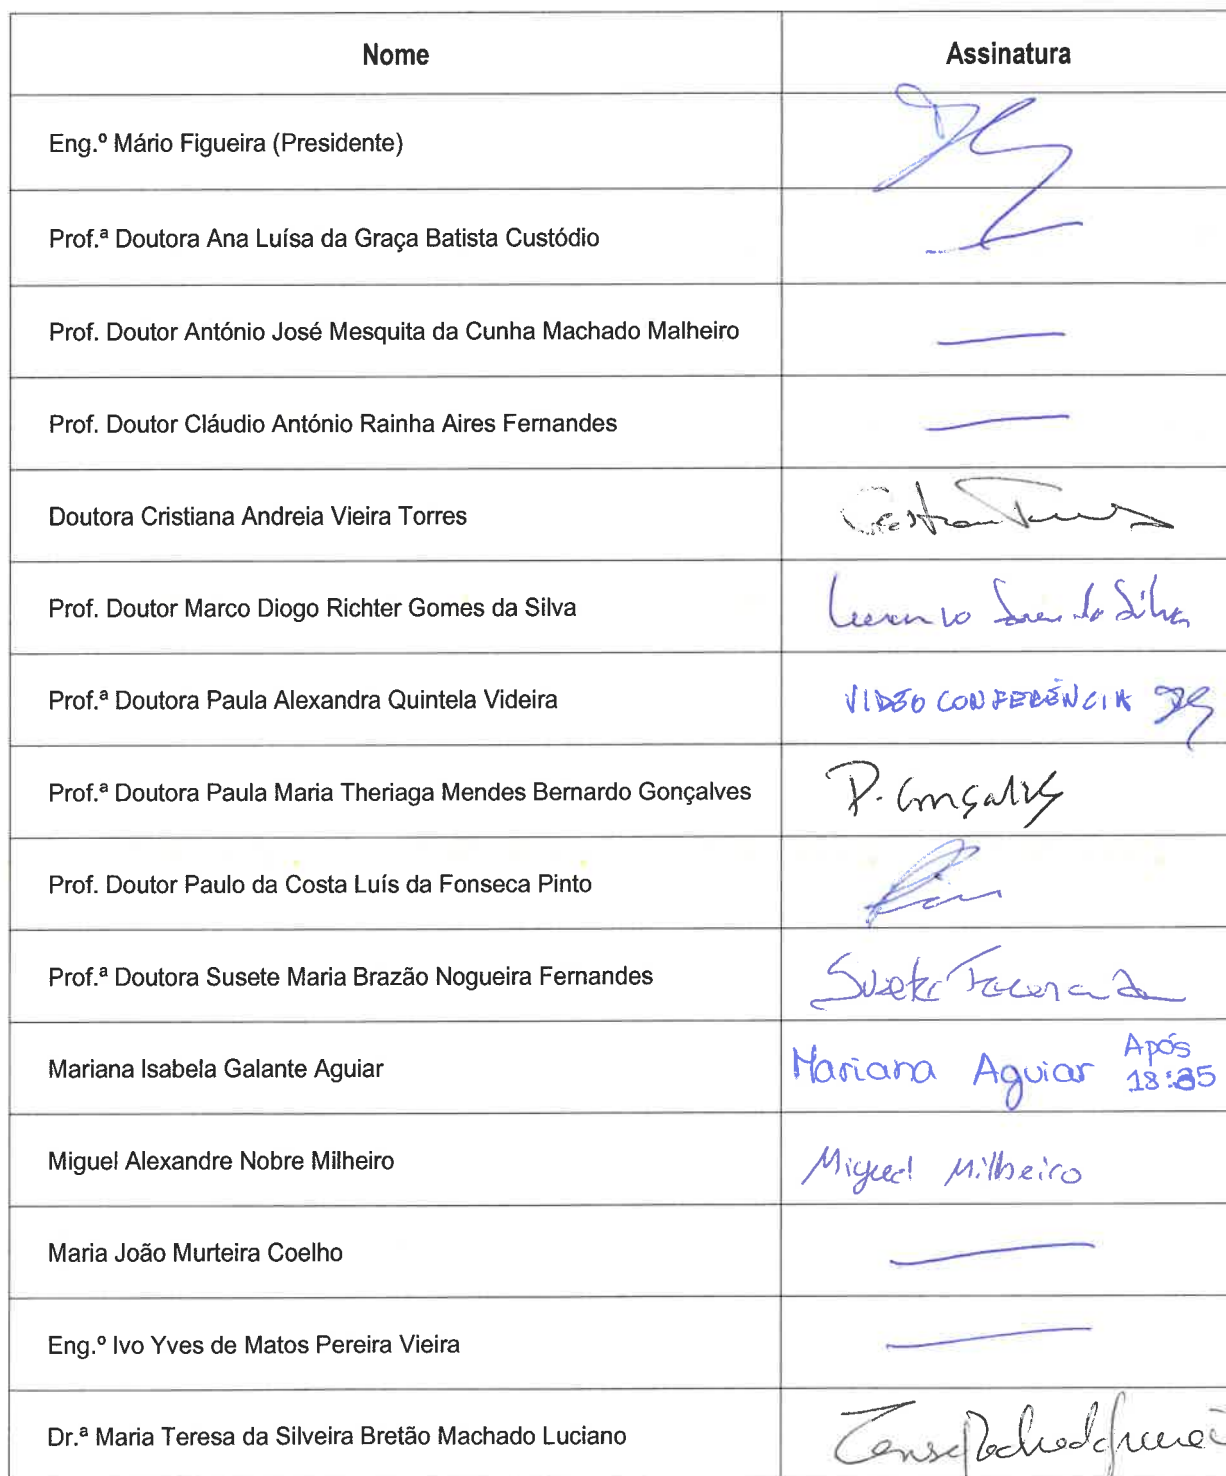 Nome Assinatura
Eng.º Mário Figueira (Presidente)
Prof.ª Doutora Ana Luísa da Graça Batista Custódio
Prof. Doutor António José Mesquita da Cunha Machado Malheiro
Prof. Doutor Cláudio António Rainha Aires Fernandes
Doutora Cristiana Andreia Vieira Torres
Prof. Doutor Marco Diogo Richter Gomes da Silva
Prof.ª Doutora Paula Alexandra Quintela Videira VIDEO CONFERÊNCIA
Prof.ª Doutora Paula Maria Theriaga Mendes Bernardo Gonçalves P. Gonçalves
Prof. Doutor Paulo da Costa Luís da Fonseca Pinto
Prof.ª Doutora Susete Maria Brazão Nogueira Fernandes Susete
Mariana Isabela Galante Aguiar Mariana Aguiar Após
18:35
Miguel Alexandre Nobre Milheiro Miguel Milheiro
Maria João Murteira Coelho
Eng.º Ivo Yves de Matos Pereira Vieira
Dr.ª Maria Teresa da Silveira Bretão Machado Luciano